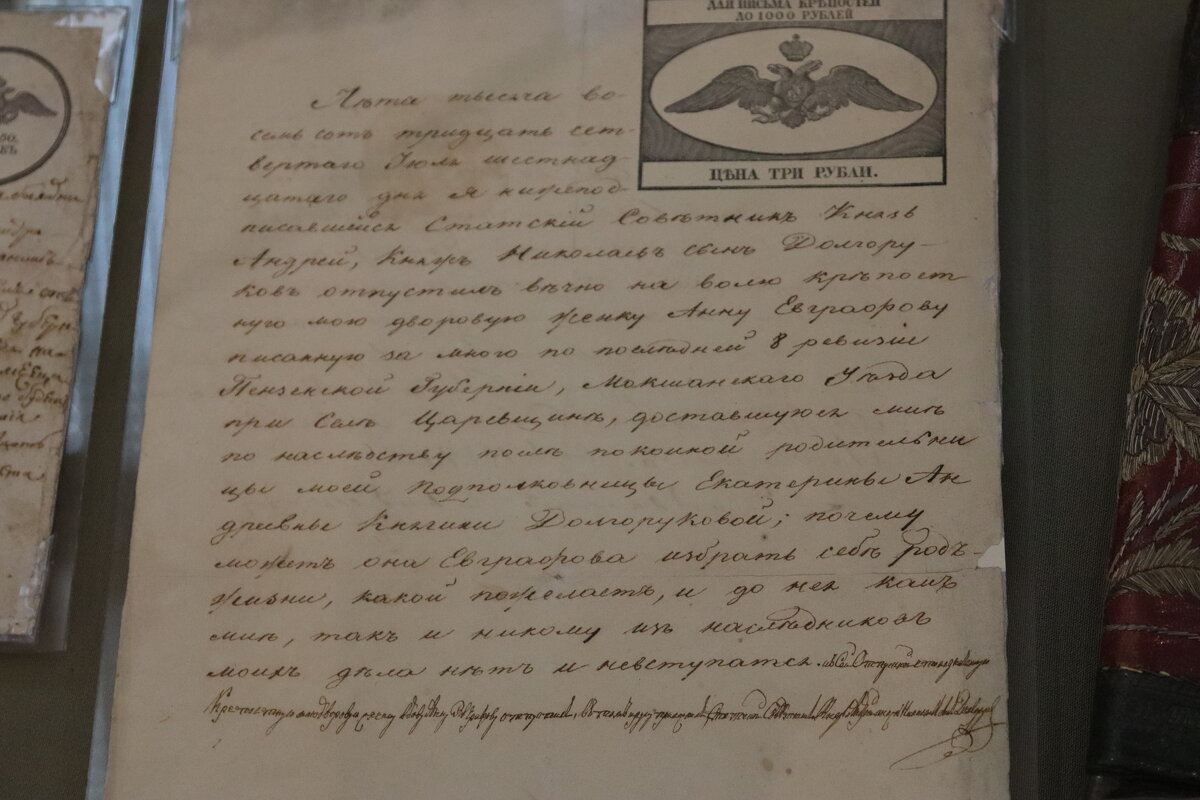 ДЛЯ ПИСЬМА КРѢПОСТЕЙ
ДО 1000 РУБЛЕЙ
ЦѢНА ТРИ РУБЛИ.
Лѣта тысяча во-
семь сотъ тридцать чет-
вертаго Іюля шестнад-
цатаго дня я нижепод-
писавшійся Статскій Совѣтникъ Князь
Андрей, Князь Николаевъ сынъ Долгору-
ковъ отпустилъ вѣчно на волю крѣпост
ную мою дворовую женку Анну Евграфову
писанную за мною по послѣдней 8 ревизіи
Пензенской Губерніи, Мокшанскаго Уѣзда
при Селѣ Царевщинѣ, доставшуюся мнѣ
по наслѣдству послѣ покойной родительни
цы моей Подполковницы Екатерины Ан
дреевны Княгини Долгоруковой; почему
можетъ она Евграфова избрать себѣ родъ-
жизни, какой пожелаетъ, и до нея какъ
мнѣ, такъ и никому изъ наслѣдниковъ
моихъ дѣла нѣтъ и невступатся.